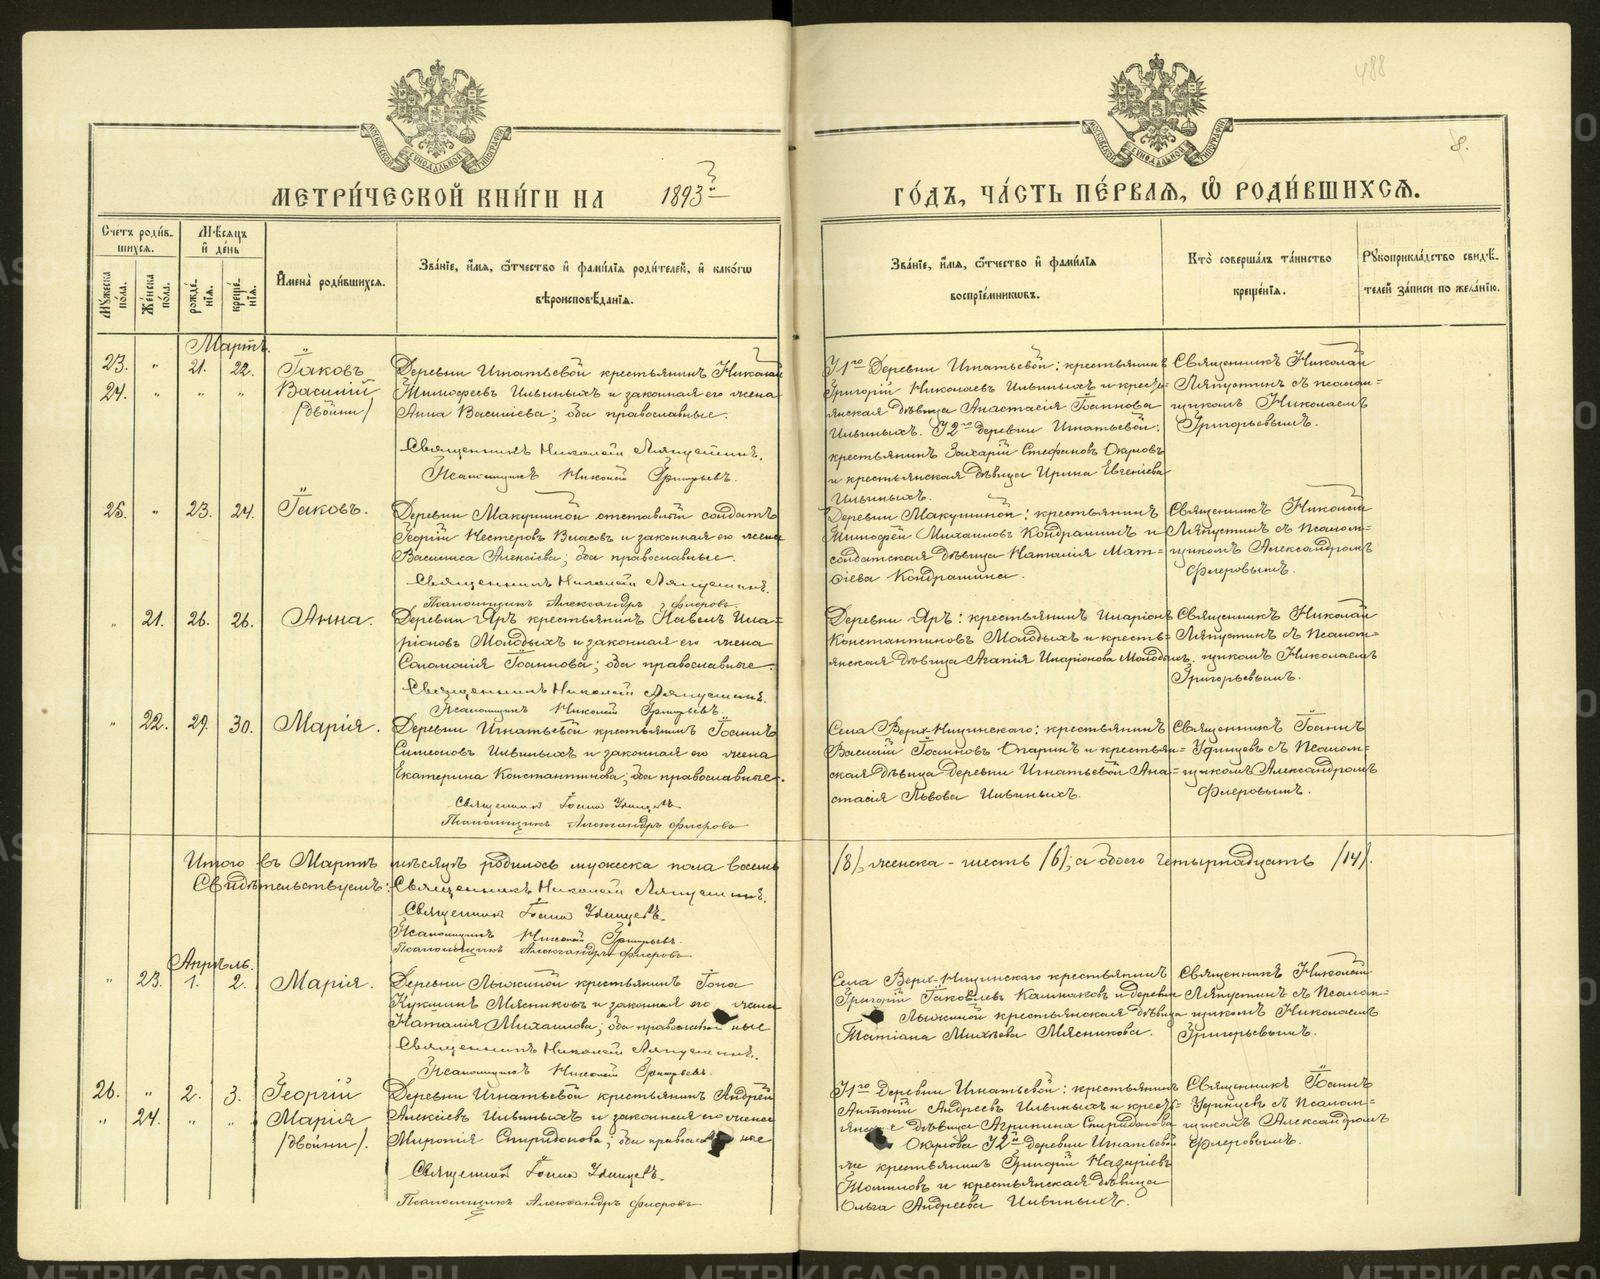 488
8.
МЕТРИ́ЧЕСКОЙ КНИ́ГИ НА 1893й
ГО́ДЪ, ЧА́СТЬ ПЕ́РВАѦ, Ѿ РОДИ́ВШИХСѦ.
Счетъ роди́вшихсѧ.
Мѣ́сѧцъ и҆ де́нь
Мꙋ́жеска по́ла.
Же́нска по́ла.
рожде́нїѧ.
креще́нїѧ.
И҆мена̀ роди́вшихсѧ.
Зва́нїе, и҆́мѧ, ѻ҆́тчество и҆ фами́лїѧ роди́телей, и҆ како́гѡ
вѣроисповѣ́данїѧ.
Зва́нїе, и҆́мѧ, ѻ҆́тчество и҆ фами́лїѧ
воспрїе́мникѡвъ.
Кто̀ соверша́лъ та́инство
креще́нїѧ.
Рꙋкоприкла́дство свидѣ́телей за́писи по жела́нїю.
Мартъ.
23. " 21. 22. Іаковъ
24. " " " Василій
/двойни/
Деревни Игнатьевой крестьянинъ Николай
Тимофеевъ Ильиныхъ и законная его жена
Анна Васильева; оба православные.
Священникъ Николай Ляпустинъ.
Псаломщикъ Николай Григорьевъ.
У 1го Деревни Игнатьевой: крестьянинъ
Григорій Николаевъ Ильиныхъ и кресть-
янская дѣвица Анастасія Іоаннова
Ильиныхъ. У 2го деревни Игнатьевой:
крестьянинъ Захарій Стефановъ
и крестьянская дѣвица Ирина Евгеніева
Ильиныхъ.
Священникъ Николай
Ляпустинъ съ псалом=
щикомъ Николаемъ
Григорьевымъ.
25. " 23. 24. Іаковъ.
Деревни Макушиной отставной солдатъ
Георгій Нестеровъ Власовъ и законная его жена
Василиса Алексѣева; оба православные.
Священникъ Николай Ляпустинъ.
Псаломщикъ Александръ Флеровъ.
Деревни Макушиной: крестьянинъ
Тимофей Михаиловъ Кондрашинъ и
солдатская дѣвица Наталія Мат=
ѳіева Кондрашина.
Священникъ Николай
Ляпустинъ съ Псалом=
щикомъ Александромъ
Флеровымъ.
" 21. 26. 26. Анна.
Деревни Яръ крестьянинъ Павелъ Ила=
ріоновъ Молодыхъ и законная его жена
Соломонія Іоаннова; оба православные.
Священникъ Николай Ляпустинъ.
Псаломщикъ Николай Григорьевъ.
Деревни Яръ: крестьянинъ Иларіонъ
Константиновъ Молодыхъ и кресть=
янская дѣвица Агапія Иларіонова Молодыхъ.
Священникъ Николай
Ляпустинъ съ Псалом=
щикомъ Николаемъ
Григорьевымъ.
" 22. 29. 30. Марія.
Деревни Игнатьевой крестьянинъ Іоаннъ
Симеоновъ Ильиныхъ и законная его жена
Екатерина Константинова; оба православные.
Священникъ Іоаннъ Удинцевъ.
Псаломщикъ Александръ Флеровъ
Села Верх-Ницинскаго: крестьянинъ
Василій Іоанновъ Опаринъ и крестьян=
ская дѣвица деревни Игнатьевой Ана=
стасія Львова Ильиныхъ.
Священникъ Іоаннъ
Удинцевъ съ Псалом=
щикомъ Александромъ
Флеровымъ.
Итого въ Мартѣ мѣсяцѣ родилось мужеска пола восемь /8/, женска - шесть /6/, а обоего четырнадцать /14/.
Свидѣтельствуемъ: Священникъ Николай Ляпустинъ.
Священникъ Іоаннъ Удинцевъ.
Псаломщикъ Николай Григорьевъ.
Псаломщикъ Александръ Флеровъ
Апрѣль.
" 23. 1. 2. Марія.
Деревни Лыжиной крестьянинъ Іона
Мясниковъ и законная его жена
Наталія Михаилова; оба православные
Священникъ Николай Ляпустинъ.
Псаломщикъ Николай Григорьевъ.
Села Верх-Ницинскаго крестьянинъ
Григорій Іаковлевъ Калмаковъ и деревни
Лыжиной крестьянская дѣвица
Татіана Михѣева Мясникова.
Священникъ Николай
Ляпустинъ съ Псалом=
щикомъ Николаемъ
Григорьевымъ.
26. " 2. 3. Георгій
" 24. " " Марія
/двойни/.
Деревни Игнатьевой крестьянинъ Андрей
Алексѣевъ Ильиныхъ и законная его жена
Миропія Спиридонова; оба православные
Священникъ Іоаннъ Удинцевъ.
Псаломщикъ Александръ Флеровъ
У 1го деревни Игнатьевой: крестьянинъ
Антоній Андреевъ Ильиныхъ и кресть=
янская дѣвица Агрипина Спиридонова
Окулова У 2й деревни Игнатьевой
же крестьянинъ Григорій Назаріевъ
Томиловъ и крестьянская дѣвица
Ольга Андреева Ильиныхъ.
Священникъ Іоаннъ
Удинцевъ съ Псалом=
щикомъ Александромъ
Флеровымъ.